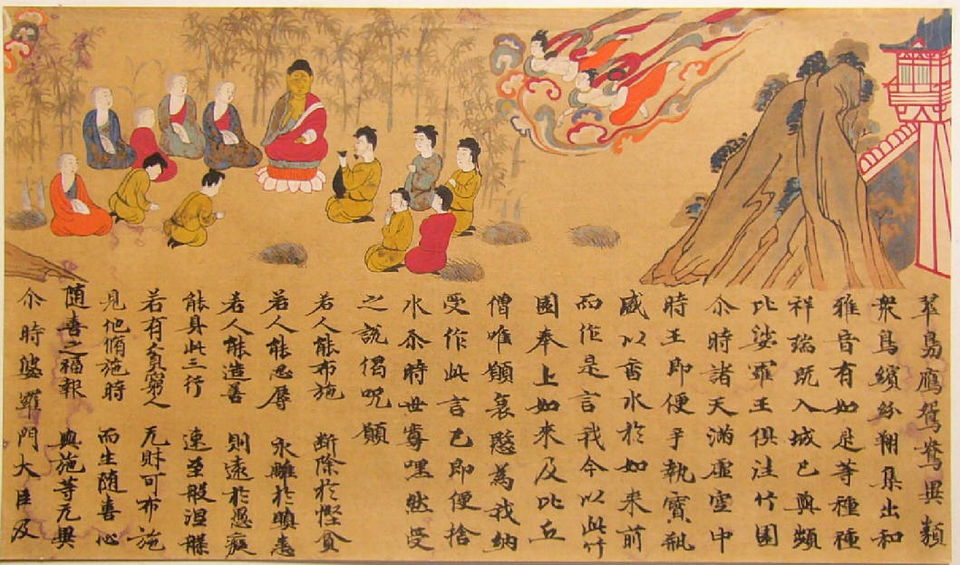 翠鳥鷹鴛鴦異類
衆鳥繽紛翔集出和
雅音有如是等種種
祥瑞既入城已與頻
比娑羅王俱往竹園
尒時諸天滿虛空中
時王即便手執寶瓶
盛以香水於如來前
而作是言我今以此竹
園奉上如來及比丘
僧唯願哀愍為我納
受作此言已即便捨
水尒時世尊嘿然受
之說偈呪願
若人能布施　斷除於慳貪
若人能忍辱　永離於瞋恚
若人能造善　則遠於愚癡
能具此三行　速至般涅槃
若有貧窮人　无財可布施
見他脩施時　而生随喜心
随喜之福報　與施等无異
尒時婆羅門大臣及